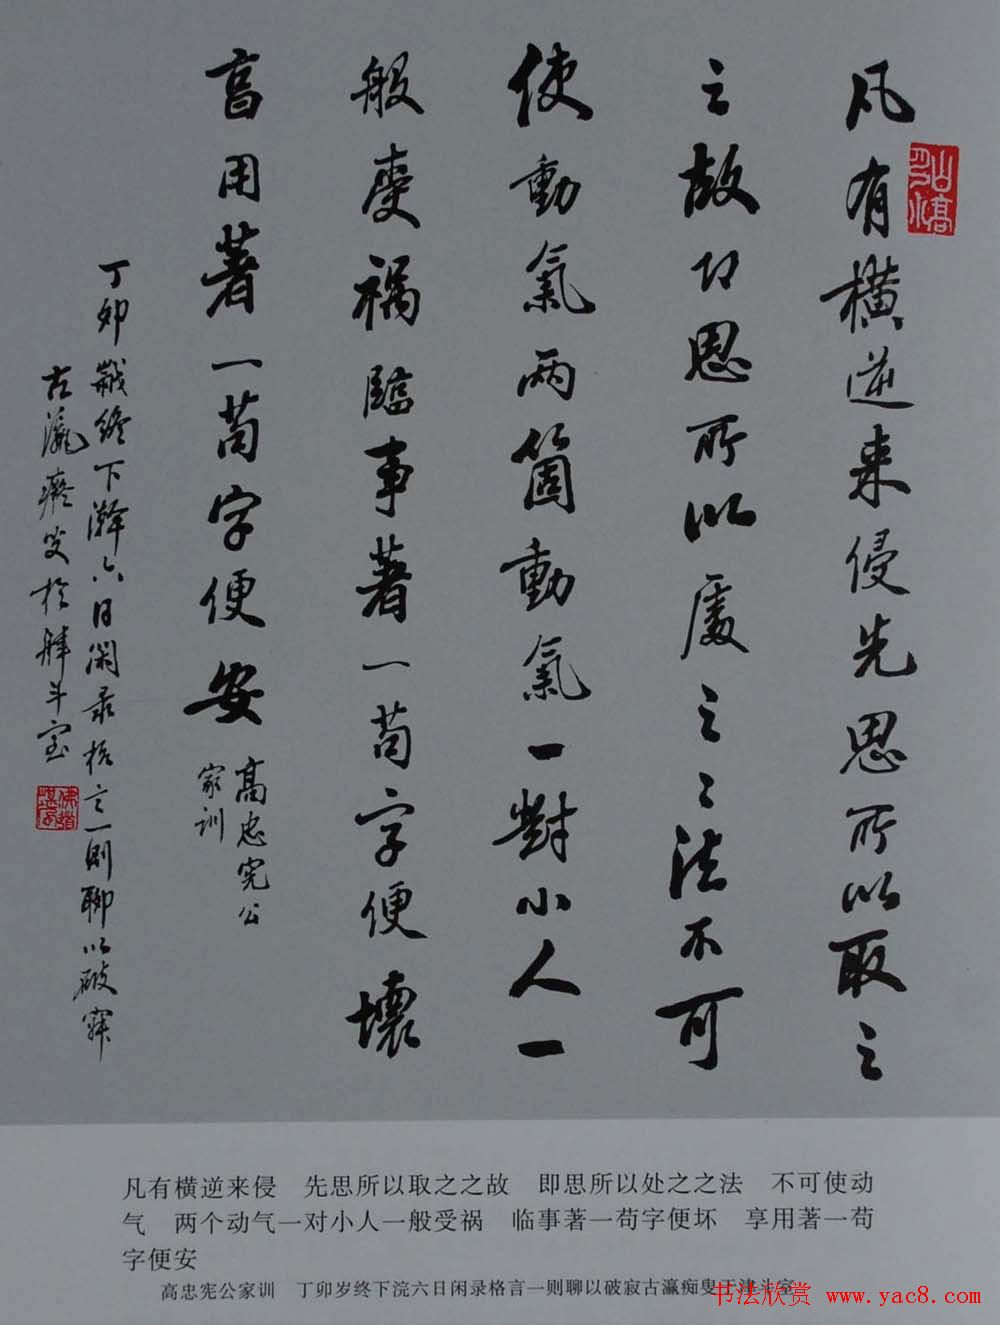 凡有橫逆来侵先思所以取之
之故即思所以處之之法不可
使動氣兩箇動氣一對小人一
般受禍臨事著一苟字便壞
享用著一苟字便安
高忠宪公
家训
丁卯歲终下澣六日闲录格言一则聊以破寂
古瀛癡叟於津斗室
凡有横逆来侵　先思所以取之之故　即思所以处之之法　不可使动
气　两个动气一对小人一般受祸　临事著一苟字便坏　享用著一苟
字便安
高忠宪公家训　丁卯岁终下浣六日闲录格言一则聊以破寂古瀛痴叟于津斗室
书法欣赏 www.yac8.com